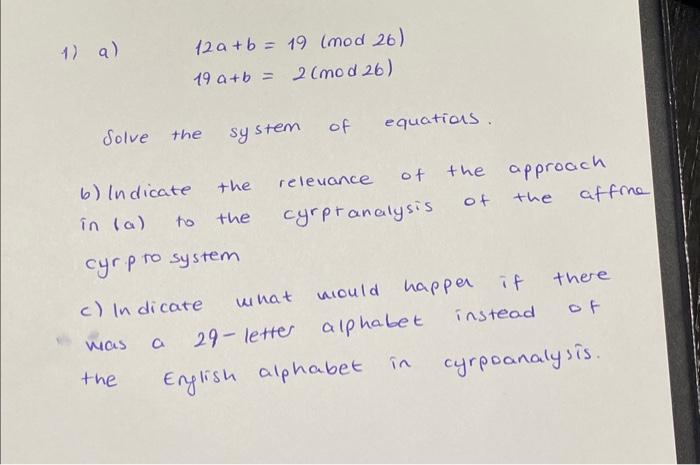 1) a) 12a+b = 19 (mod 26)
19a+b = 2(mod 26)
Solve the system of equations.
b) Indicate the relevance of the approach
in (a) to the cyrptanalysis of the affine
cyrpto system
c) Indicate what would happen if there
was a 29-letter alphabet instead of
the English alphabet in cyrpoanalysis.